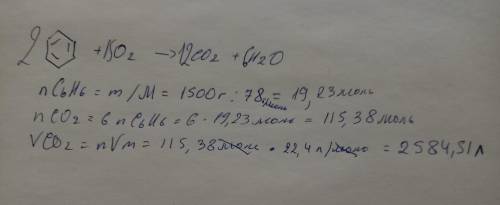 2 +15O2 → 12CO2 + 6H2O
nC6H6 = m/M = 1500г : 78г/моль = 19,23моль
nCO2 = 6 nC6H6 = 6 · 19,23моль = 115,38моль
VCO2 = nVm = 115,38моль · 22,4л/моль = 2584,51л